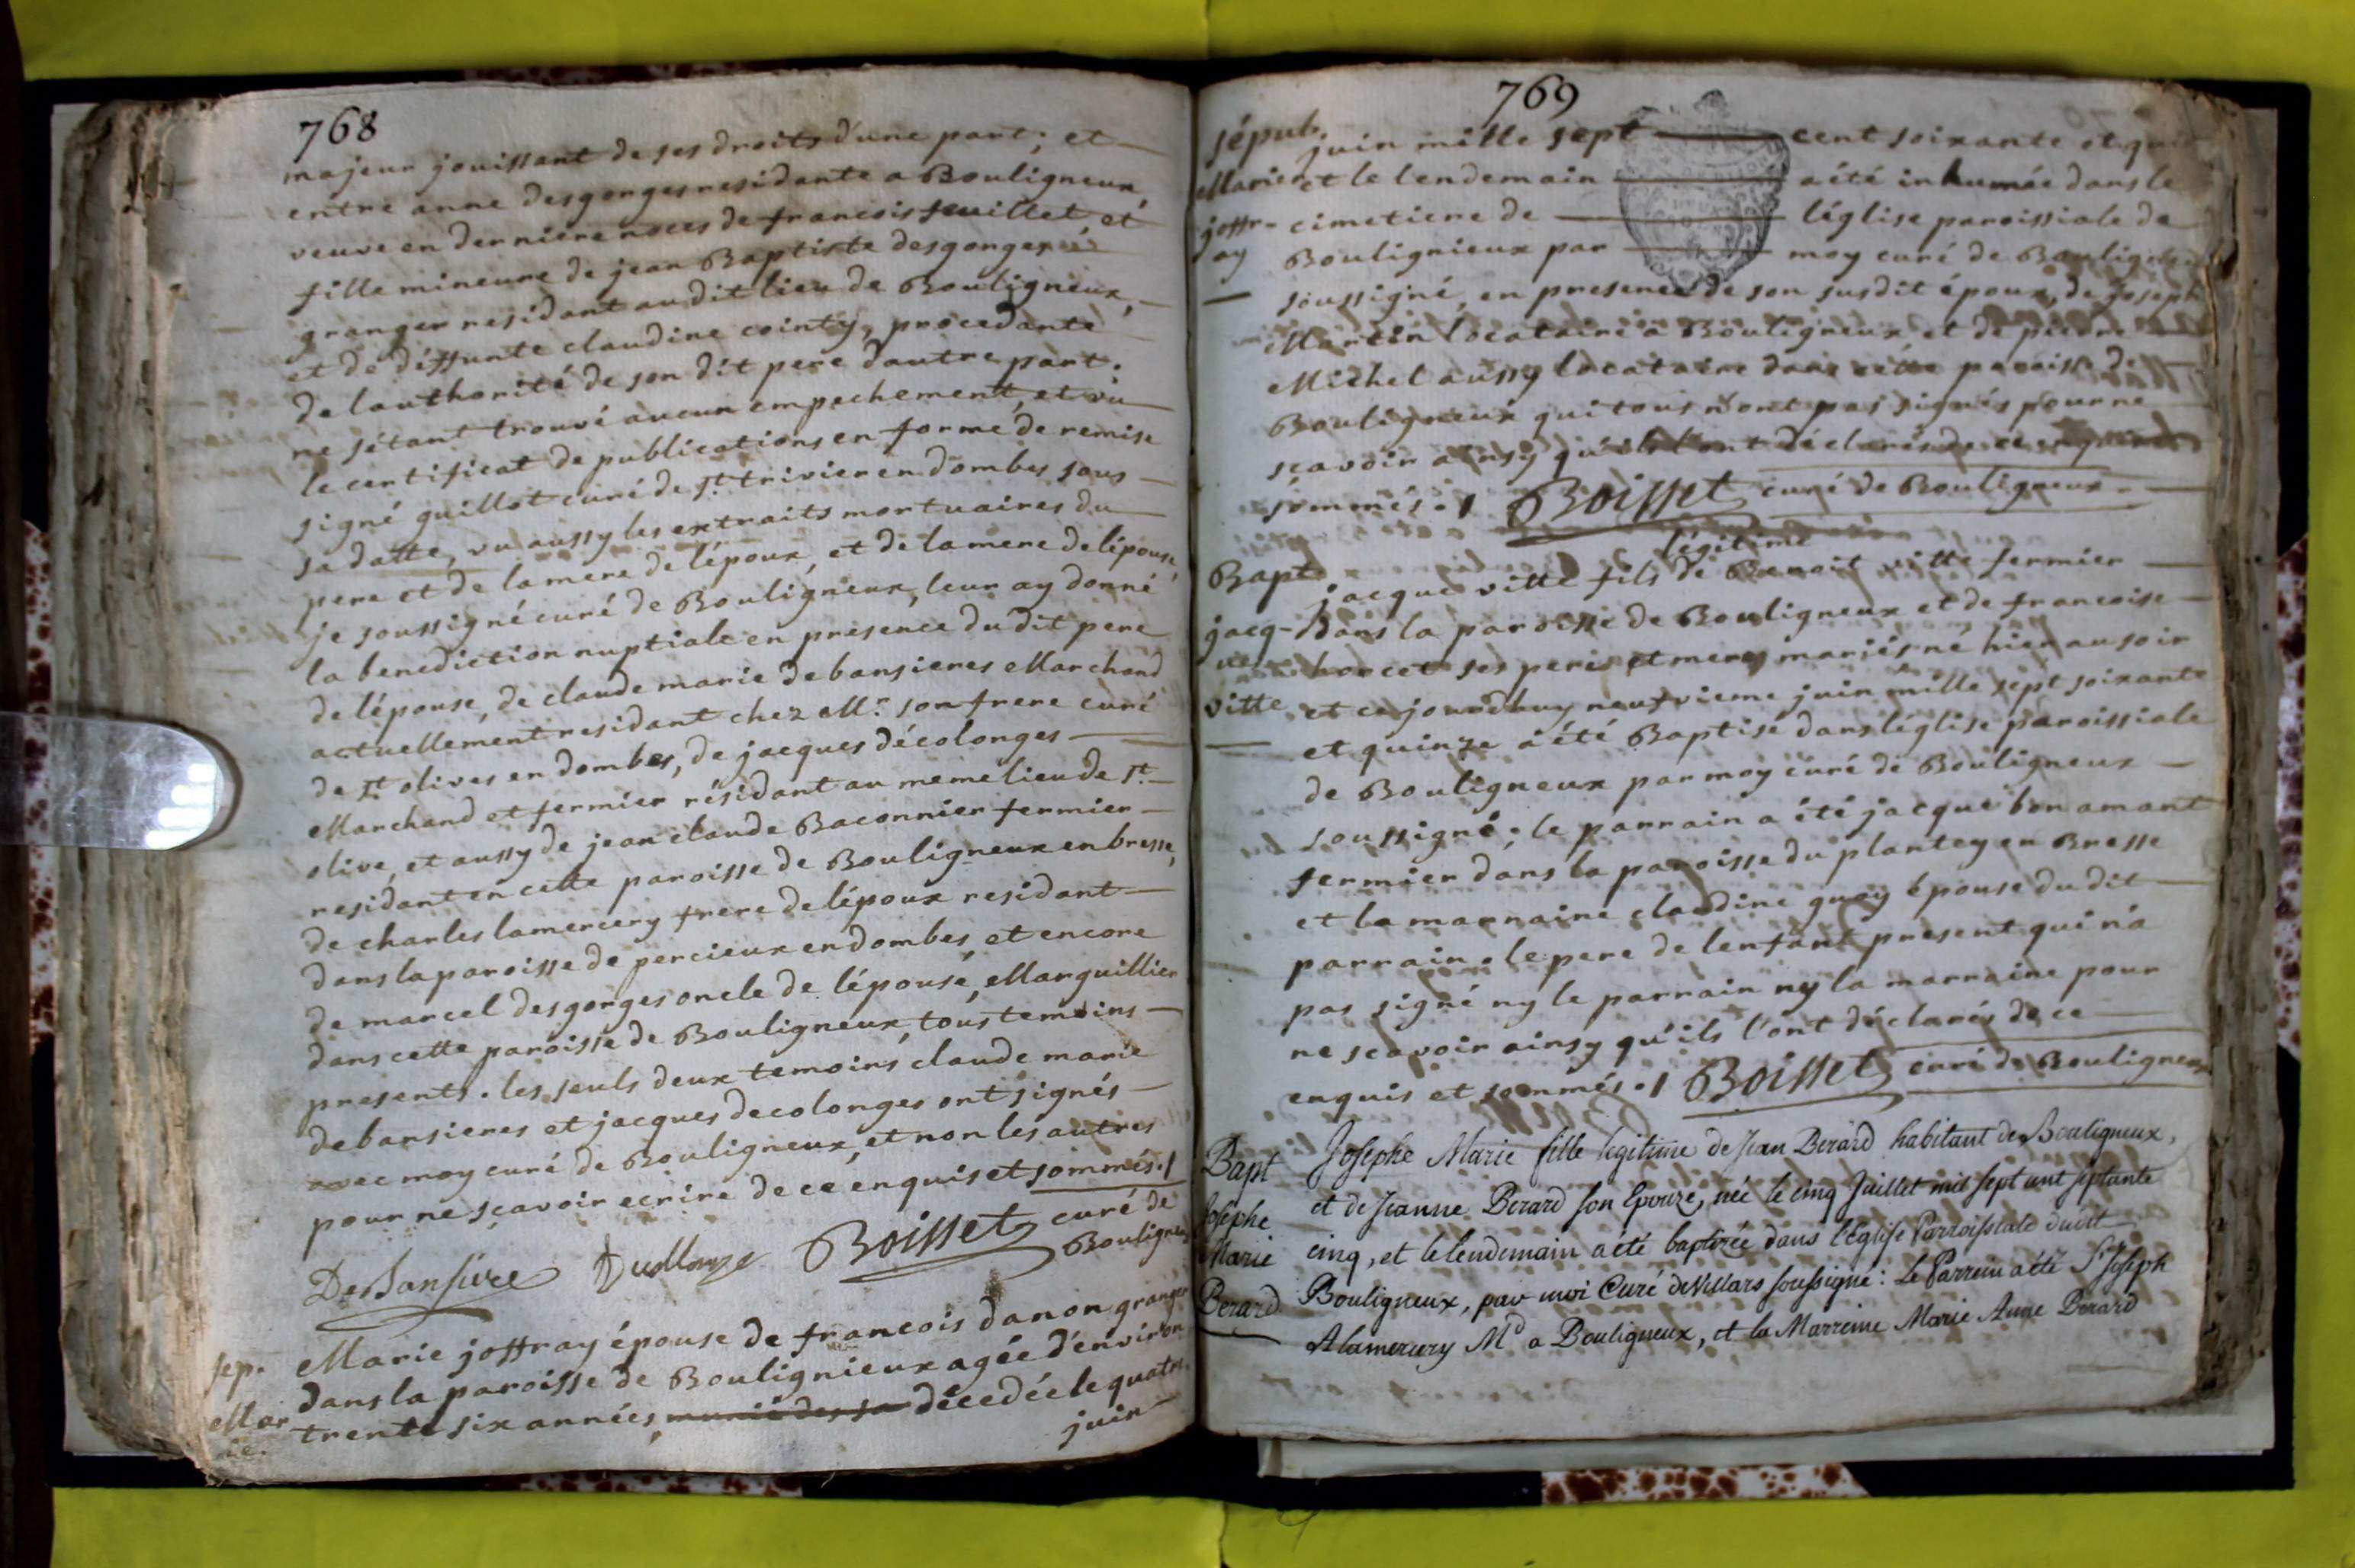 768
majeur jouissant de ses droits d'une part; et
entre anne desgorges residante a Bouligneux,
veuve en derniere noces de francois feuillet et
fille mineure de jean Baptiste desgorges
granger residant au dit lieu de Bouligneux,
et de diffunte claudine cointy, procedante
de lauthorité de son dit pere dautre part.
ne sétant trouvé aucun empechement, et vu
le certificat de publications en forme de remise
signé guillot curé de st. trivier en dombes sous
sa datte, vu aussy les extraits mortuaires du
pere et de la mere de lépoux, et de la mere de lépouse,
je soussigné curé de Bouligneux, leur ay donné
la benediction nuptiale en presence du dit pere
de lépouse, de claude marie debansieres Marchand
actuellement residant chez Mr. son frere curé
de st. olives en dombes, de jacques décolonges
Marchand et fermier résidant au meme lieu de st.
olive, et aussy de jean claude Baconnier fermier
residant en cette paroisse de Bouligneux en bresse,
de charles lamercery frere de lépoux residant
dans la paroisse de percieux en dombes, et encore
de marcel desgorges oncle de lépouse, Marguillier
dans cette paroisse de Bouligneux, tous temoins
presents. les seuls deux temoins claude marie
debansieres et jacques decolonges ont signés
avec moy curé de Bouligneux, et non les autres
pour ne sçavoir ecrire de ce enquis et sommés./
Boisset curé de
Bouligneux
sep.
Marie
Marie joffray épouse de francois danon granger
dans la paroisse de Boulignieux agée d'environ
trente six années, décedée le quatre
juin
769
sépub.
Marie
joffr-
ay
juin mille sept cent soixante et
et le lendemain a été inhumée dans le
cimetiere de léglise paroissiale de
Boulignieux par moy curé de
soussigné, en presence de son susdit époux, de joseph
Martin locataire a Bouligneux et de pierre
Michel aussy locataire dans cette paroisse de
Bouligneux qui tous n'ont pas signés pour ne
sçavoir ainsy qu'ils l'ont déclarés de ce enquis et
sommés./ Boisset curé de Bouligneux
Bapt.
jacq-
ue
vitte
légitime
jacque vitte fils de Benoit vitte fermier
dans la paroisse de Bouligneux et de francoise
borcet ses pere et mere mariés né hier au soir
et ce jourdhuy neufvieme juin mille sept soixante
et quinze a été Baptisé dans léglise paroissiale
de Bouligneux par moy curé de Bouligneux
soussigné; le parrain a été jacque bon amant
fermier dans la paroisse du plantey en Bresse
et la marraine claudine guay épouse du dit
parrain. le pere de lenfant present qui n'a
pas signé ny le parrain ny la marraine pour
ne scavoir ainsy qu'ils l'ont déclarés de ce
enquis et sommés./ Boisset curé de Bouligneux
Bapt
Josephe
Marie
Berard
Josephe Marie fille legitime de Jean Berard habitant de Bouligneux,
et de Jeanne Berard son Epouze, née le cinq Juillet mil sept cent septante
cinq, et le lendemain a été baptizée dans l'Eglise Parroissiale dudit
Bouligneux, par moi Curé de Villars soussigné: Le Parrein a été Sr Joseph
Alamercery Md a Bouligneux, et la Marreine Marie Anne Berard